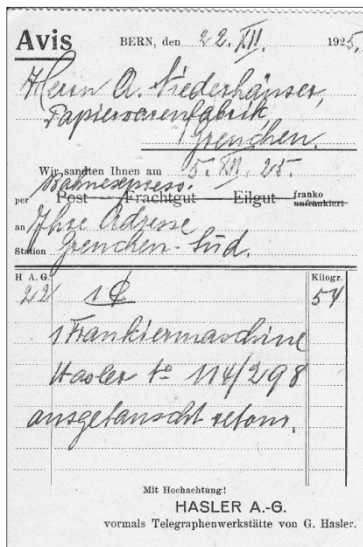 Avis BERN, den 22. XII. 1925.
Herrn A. Niederhäuser,
Papierwarenfabrik,
Grenchen.
Wir sandten Ihnen am 5. XII. 25.
Bahnexpress.
per Post Frachtgut Eilgut franko unfrankiert
an Ihre Adresse
Station Grenchen-Süd.
H A.G. Kilogr.
22 1 54
1 Frankiermaschine
Hasler No 114/298
ausgetauscht retour,
Mit Hochachtung!
HASLER A.-G.
vormals Telegraphenwerkstätte von G. Hasler.